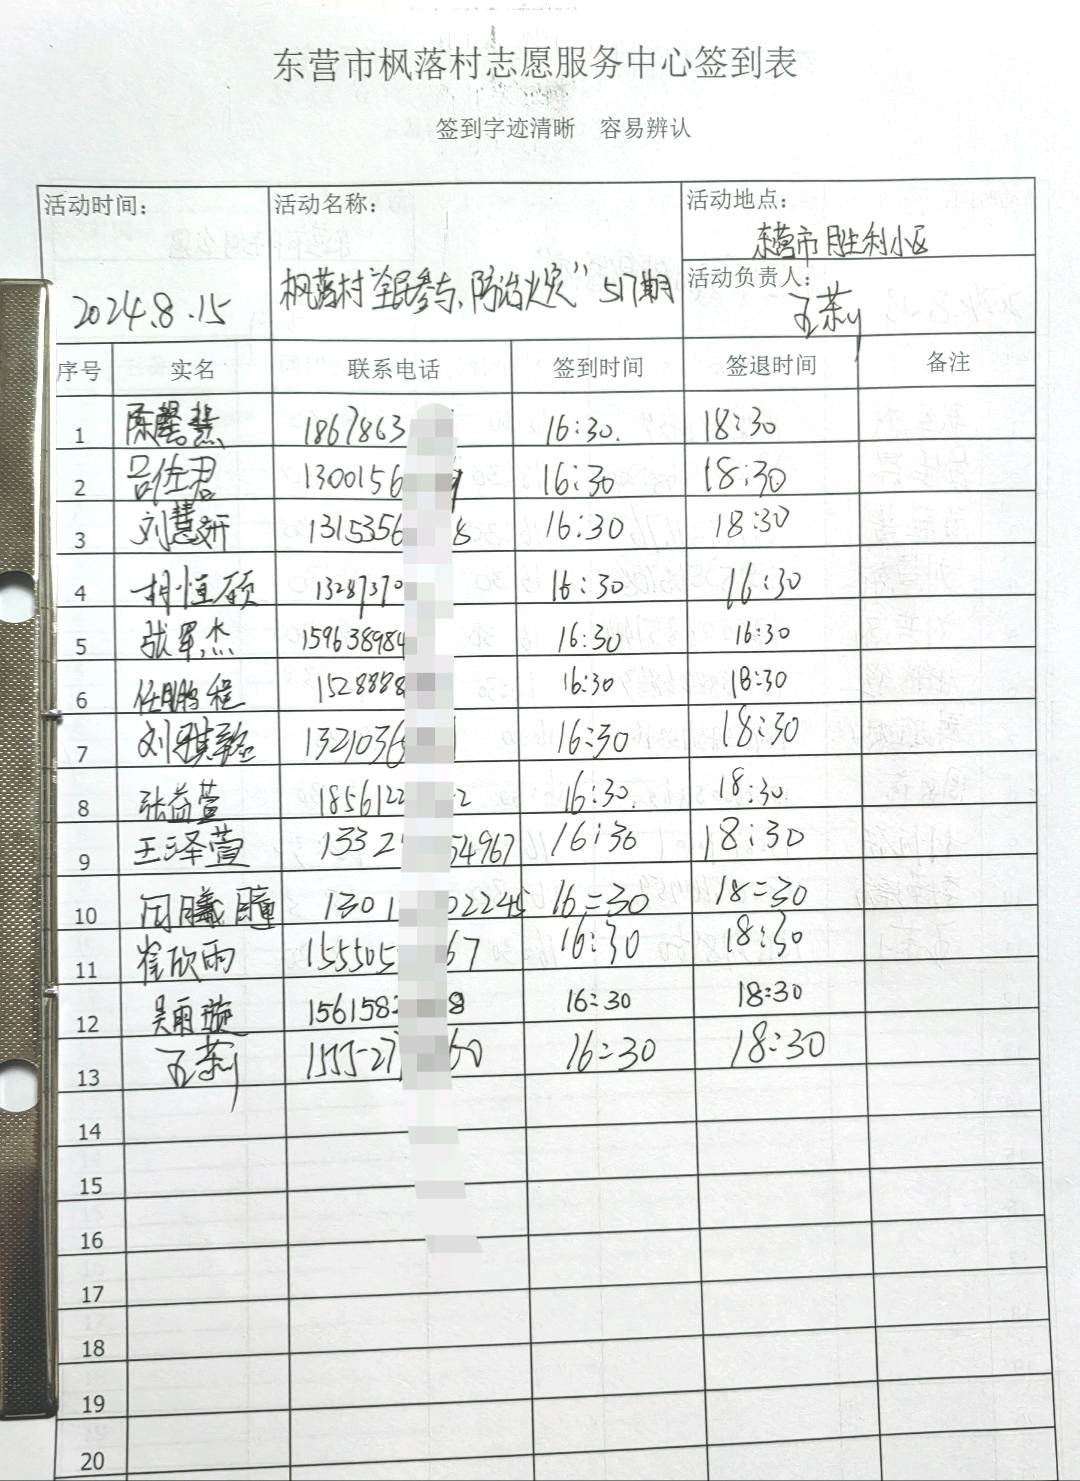 东营市枫落村志愿服务中心签到表
签到字迹清晰 容易辨认
活动时间: 活动名称: 活动地点:
东营市胜利小区
活动负责人:
2024.8.15 枫落村"全民参与、防治火灾" 517期 王莉
序号 实名 联系电话 签到时间 签退时间 备注
1 陈馨慧 1867863 16:30. 18:30
2 吕佐君 1300156 9 16:30 18:30
3 刘慧妍 1315356 8 16:30 18:30
4 恒硕 13287370 16:30 16:30
5 张军杰 159638984 16:30 16:30
6 任鹏程 1528888 16:30 18:30
7 刘雅 1321036 1 16:30 18:30
8 张益萱 1856122 2 16:30. 18:30.
9 王泽萱 1332 54967 16:30 18:30
10 闫曦瞳 1301 02245 16:30 18:30
11 崔欣雨 155505 67 16:30 18:30
12 吴雨璇 1561582 8 16:30 18:30
13 王莉 155527 60 16:30 18:30
14
15
16
17
18
19
20